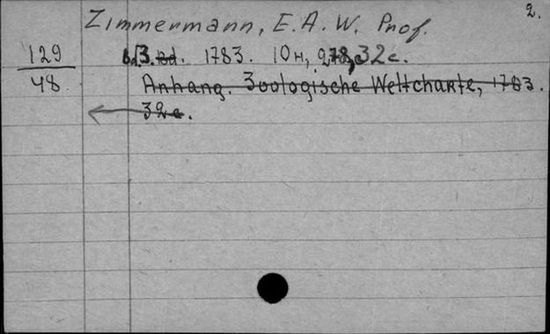 2.
Zimmermann, E. A. W. Prof.
129
48.
3. Bd. 1783. 10 н, 278, 32 с.
Anhang. Zoologische Weltcharte, 1783.
32 с.